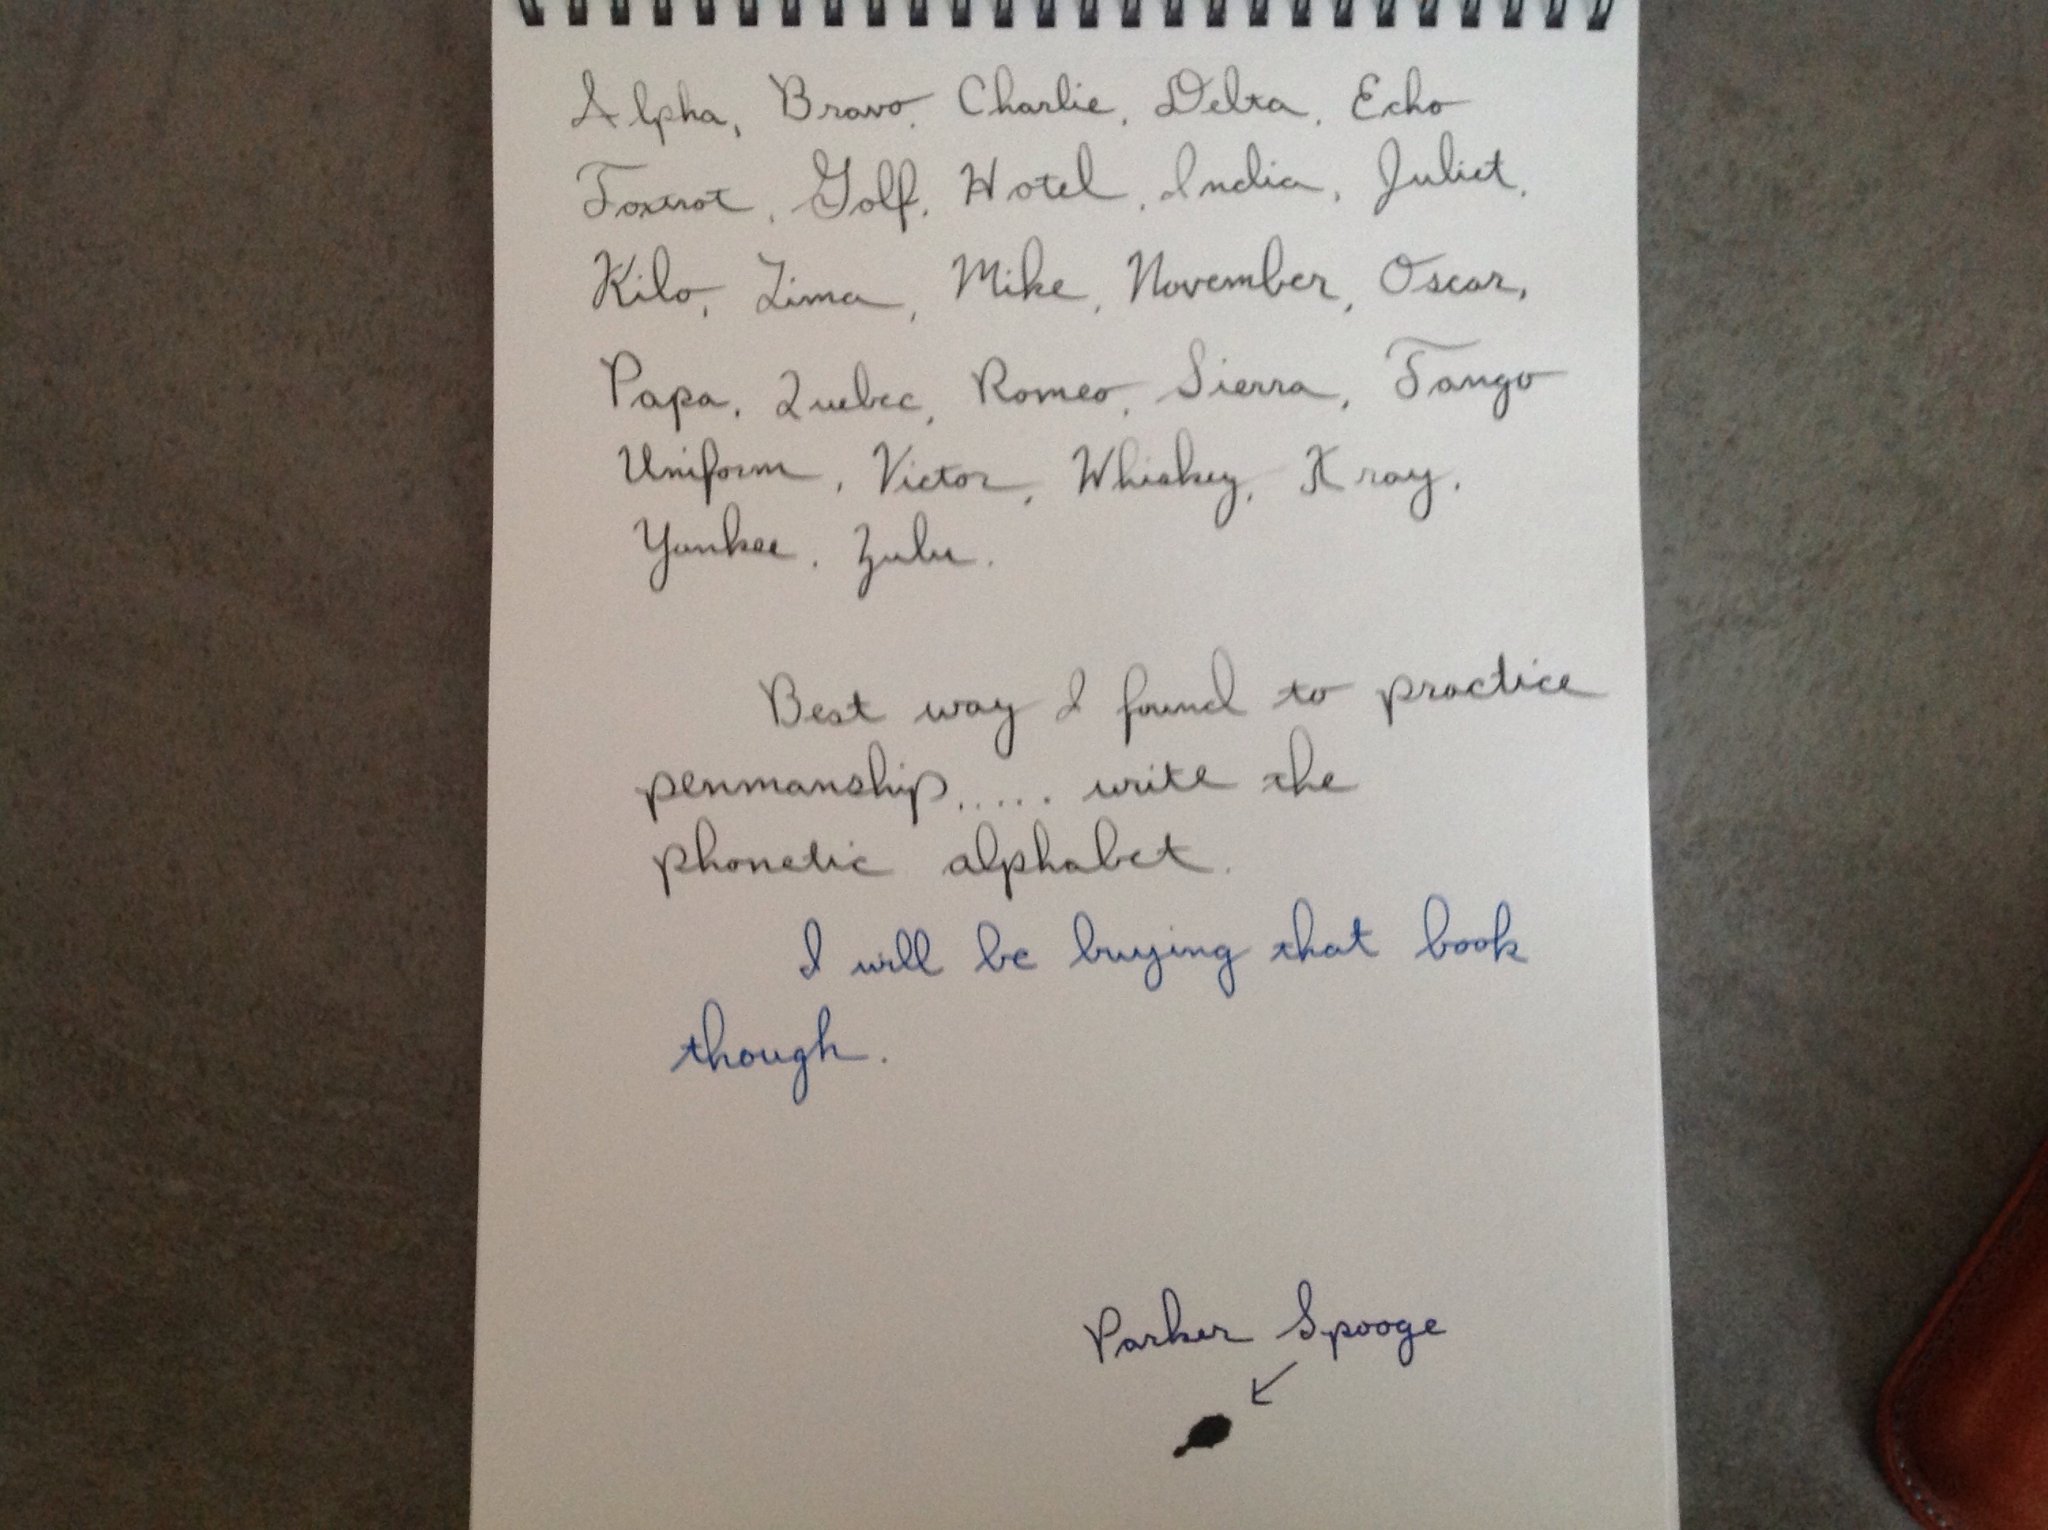 Alpha, Bravo, Charlie, Delta, Echo
Foxtrot, Golf, Hotel, India, Juliet,
Kilo, Lima, Mike, November, Oscar,
Papa, Quebec, Romeo, Sierra, Tango
Uniform, Victor, Whiskey, Xray,
Yankee, Zulu.
Best way I found to practice
penmanship..... write the
phonetic alphabet.
I will be buying that book
though.
Parker Spooge